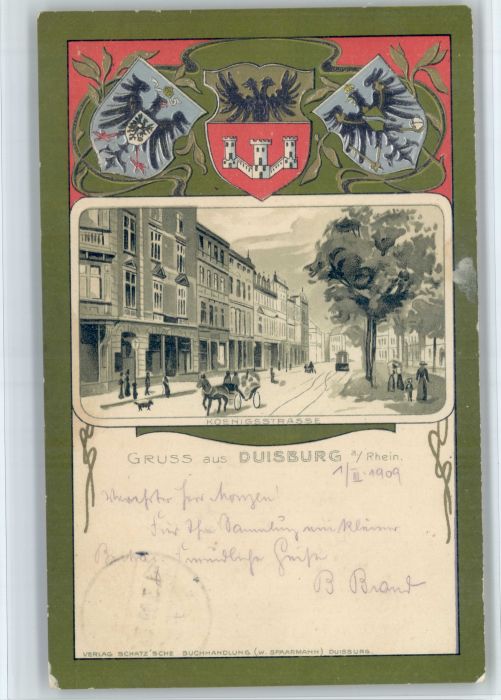 KOENIGSSTRASSE
GRUSS aus DUISBURG a/ Rhein.
1/II. 1909
Herr
Für Ihre Sammlung ein kleiner
Freundliche Grüße
B Brand
VERLAG SCHATZ'SCHE BUCHHANDLUNG (W. SPAARMANN) DUISBURG.